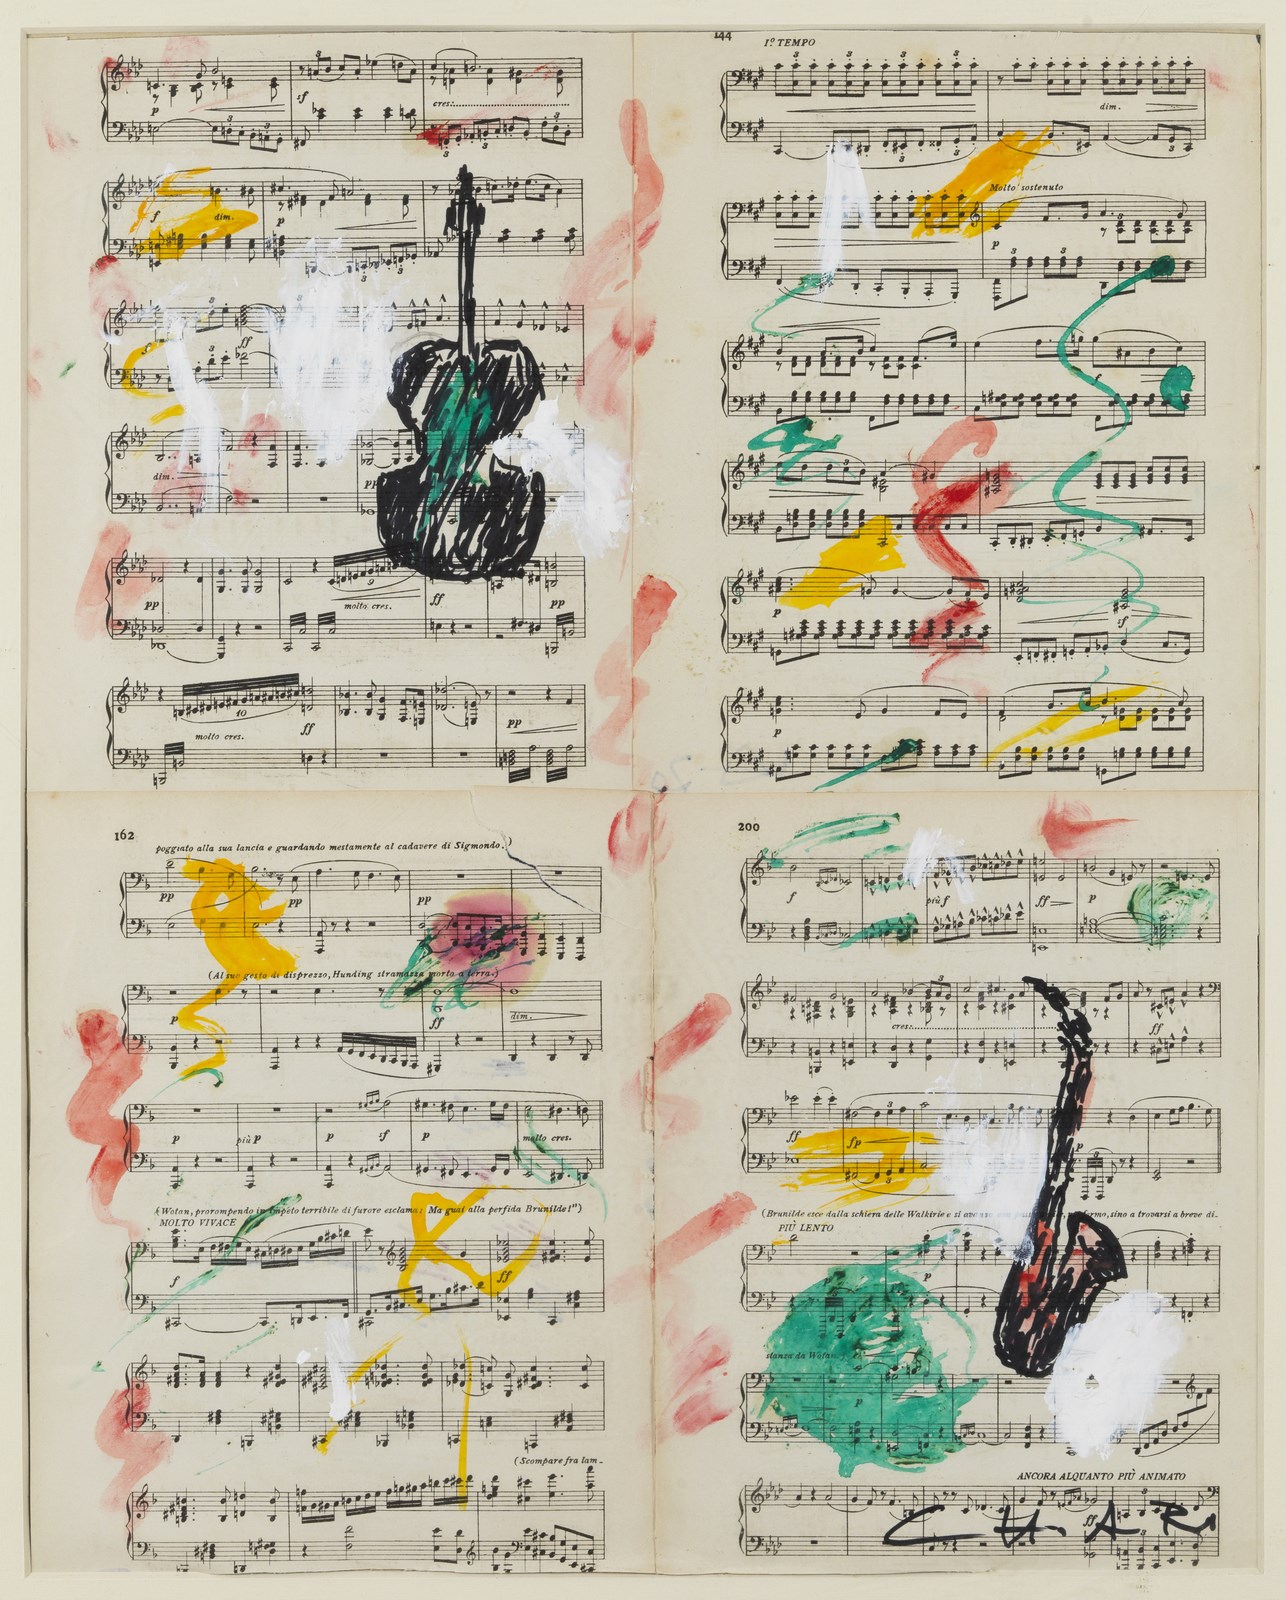 p
sf
cres:
f
dim.
p
f
ff
dim.
pp
pp
molto cres.
ff
pp
molto cres.
ff
pp
144
1º TEMPO
dim.
Molto sostenuto
p
f
p
sf
p
162
poggiato alla sua lancia e guardando mestamente al cadavere di Sigmondo.)
pp
pp
pp
(Al suo gesto di disprezzo, Hunding stramazza morto a terra.)
p
ff
dim.
p
più p
p
sf
p
molto cres.
(Wotan, prorompendo in impeto terribile di furore esclama: Ma guai alla perfida Brunilde!")
MOLTO VIVACE
f
ff
(Scompare fra lam-
200
f
più f
ff
p
cres:
ff
ff
fp
p
(Brunilde esce dalla schiera delle Walkirie e si fermo, sino a trovarsi a breve di-
PIÙ LENTO
p
stanza da Wotan
p
ANCORA ALQUANTO PIÙ ANIMATO
ff
CHAR